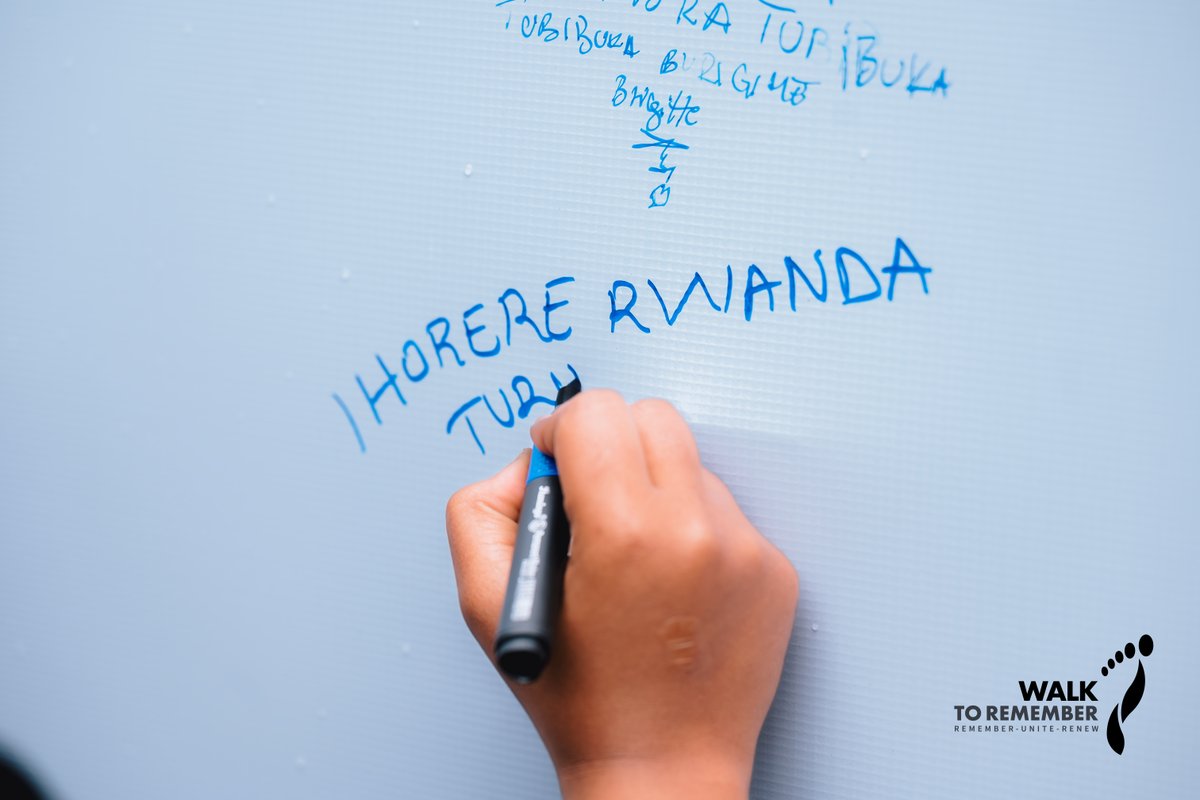 TURIBUKA
TUBIBUKA BURIGIHE
Brigitte
IHORERE RWANDA
TURI
WALK
TO REMEMBER
REMEMBER-UNITE-RENEW